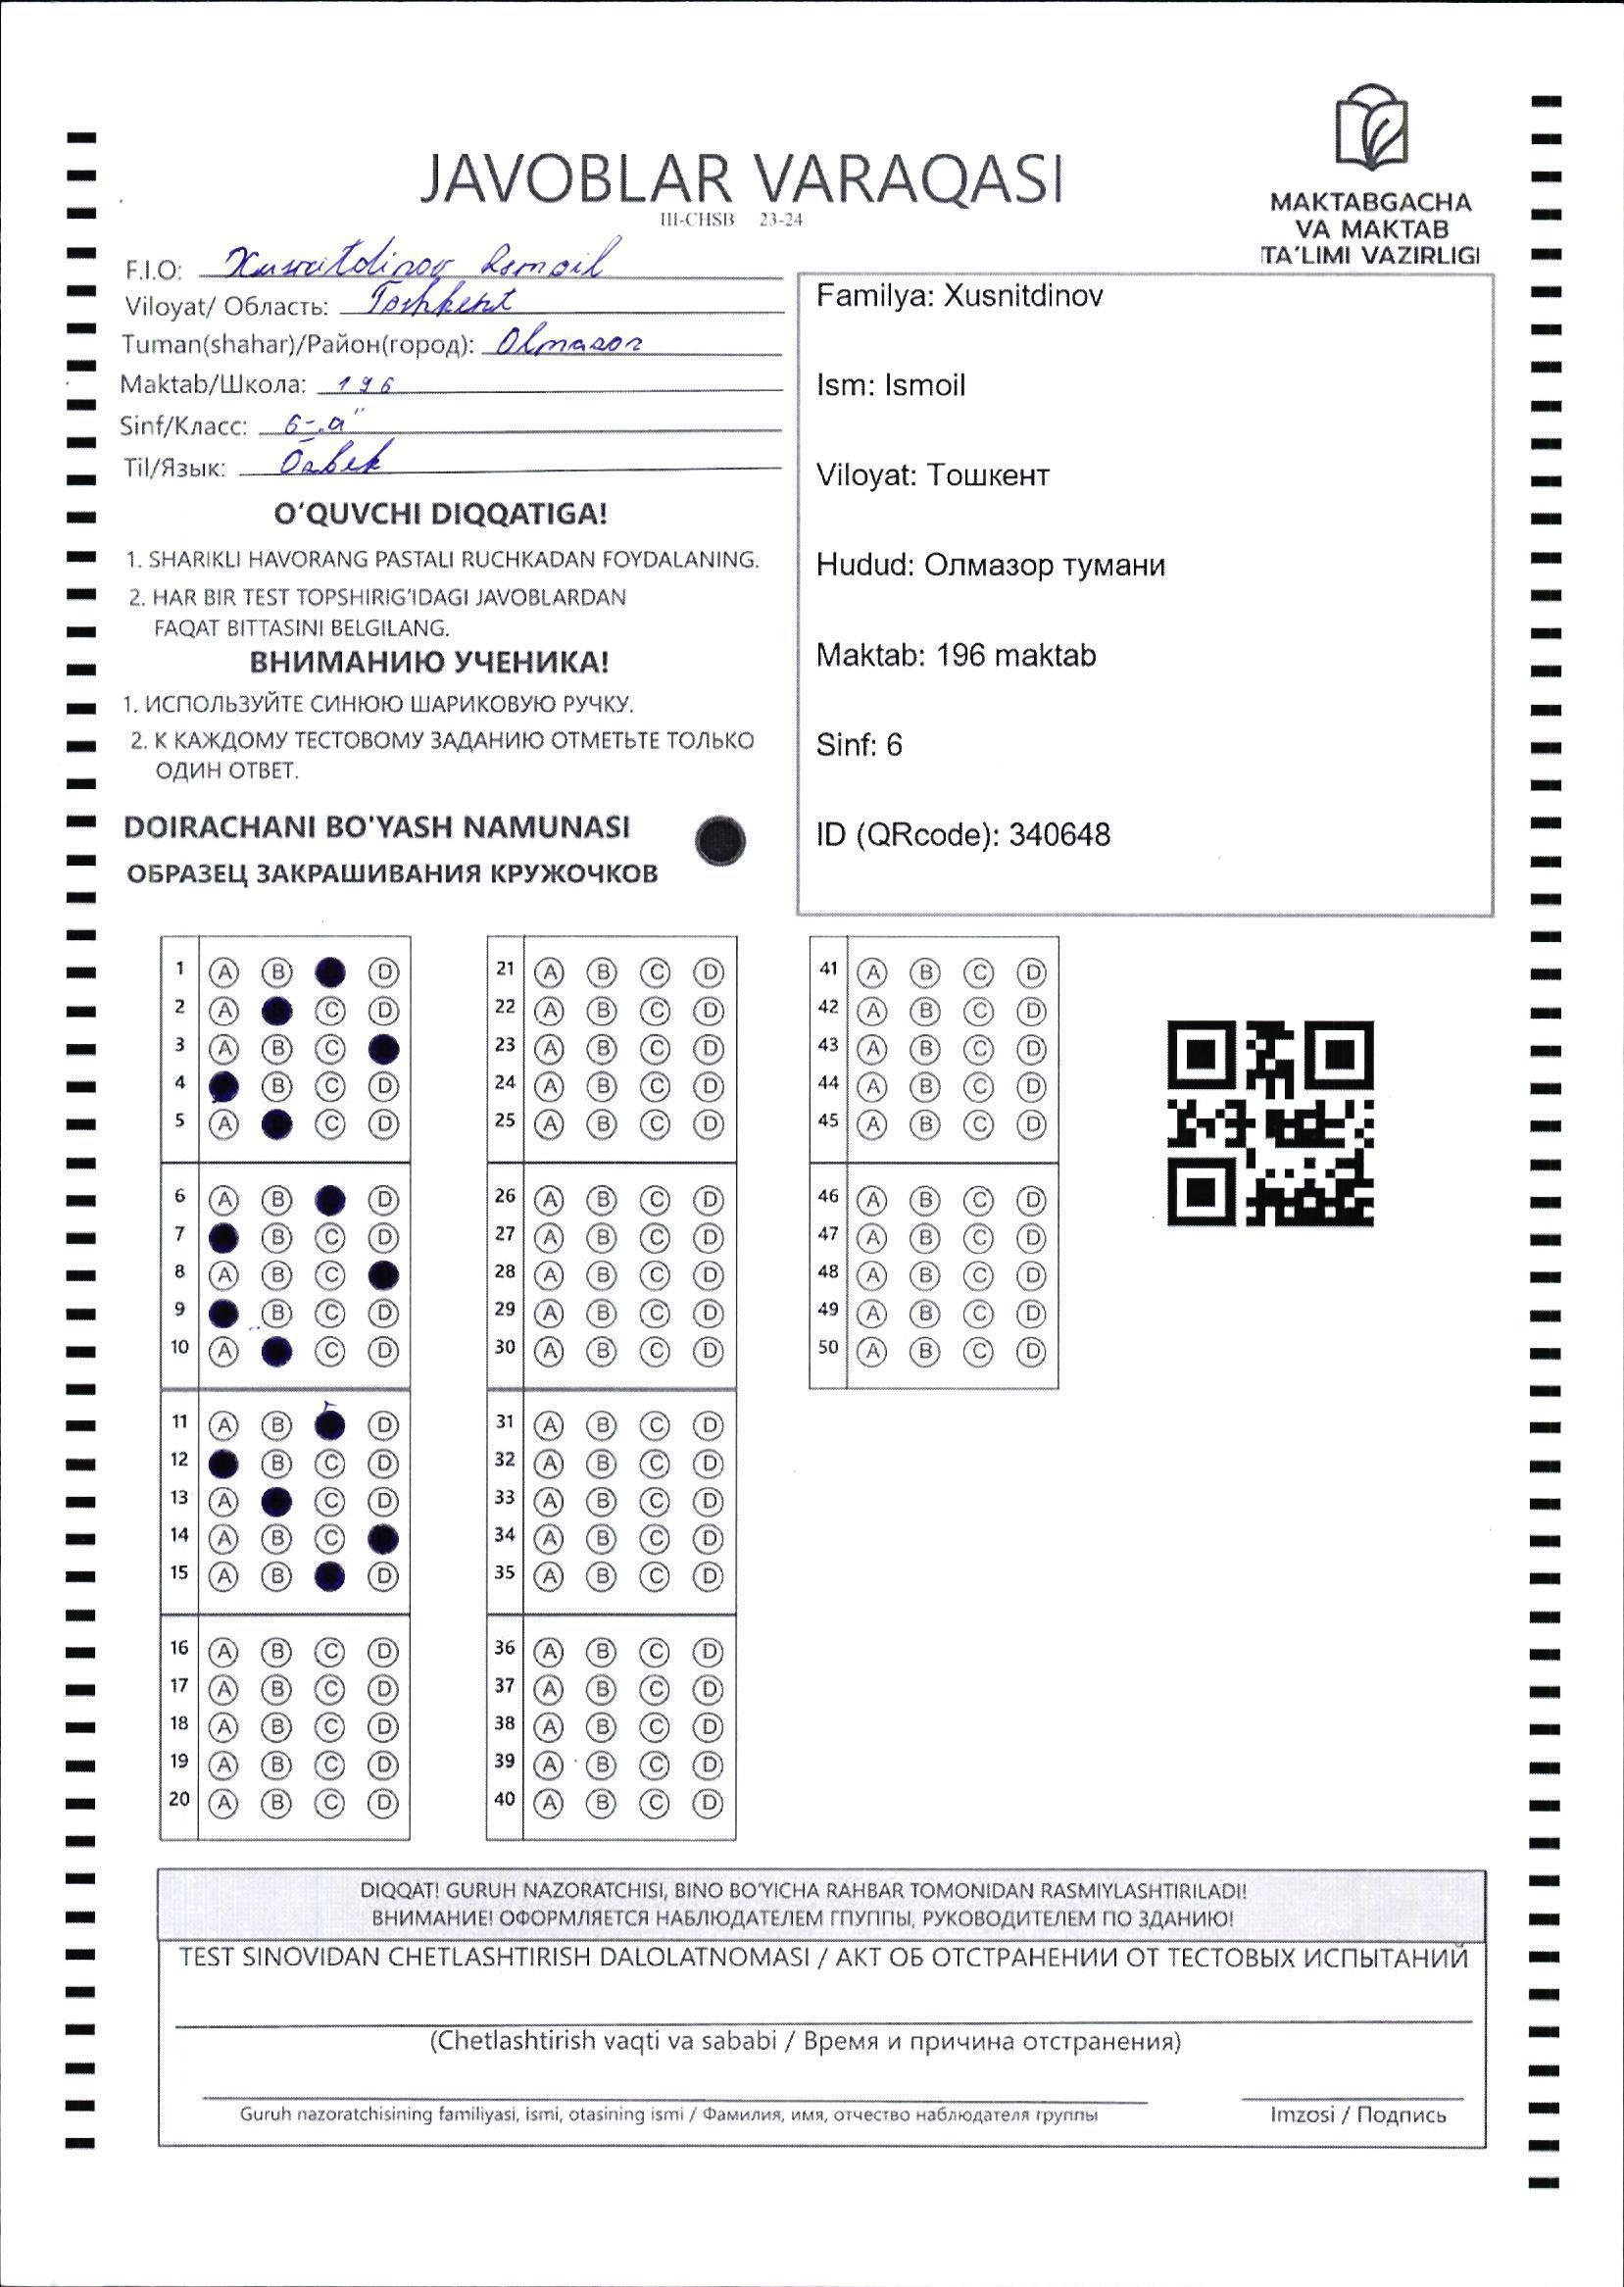 JAVOBLAR VARAQASI
III-CHSB 23-24
MAKTABGACHA
VA MAKTAB
TA'LIMI VAZIRLIGI
F.I.O: Ismoil
Viloyat/ Область: Toshkent
Tuman(shahar)/Район(город): Olmazor
Maktab/Школа: 196
Sinf/Класс: 6-"a"
Til/Язык: Özbek
O'QUVCHI DIQQATIGA!
1. SHARIKLI HAVORANG PASTALI RUCHKADAN FOYDALANING.
2. HAR BIR TEST TOPSHIRIG'IDAGI JAVOBLARDAN
FAQAT BITTASINI BELGILANG.
ВНИМАНИЮ УЧЕНИКА!
1. ИСПОЛЬЗУЙТЕ СИНЮЮ ШАРИКОВУЮ РУЧКУ.
2. К КАЖДОМУ ТЕСТОВОМУ ЗАДАНИЮ ОТМЕТЬТЕ ТОЛЬКО
ОДИН ОТВЕТ.
DOIRACHANI BO'YASH NAMUNASI
ОБРАЗЕЦ ЗАКРАШИВАНИЯ КРУЖОЧКОВ
Familya: Xusnitdinov
Ism: Ismoil
Viloyat: Тошкент
Hudud: Олмазор тумани
Maktab: 196 maktab
Sinf: 6
ID (QRcode): 340648
1 A B D
2 A C D
3 A B C
4 B C D
5 A C D
6 A B D
7 B C D
8 A B C
9 B C D
10 A C D
11 A B D
12 B C D
13 A C D
14 A B C
15 A B D
16 A B C D
17 A B C D
18 A B C D
19 A B C D
20 A B C D
21 A B C D
22 A B C D
23 A B C D
24 A B C D
25 A B C D
26 A B C D
27 A B C D
28 A B C D
29 A B C D
30 A B C D
31 A B C D
32 A B C D
33 A B C D
34 A B C D
35 A B C D
36 A B C D
37 A B C D
38 A B C D
39 A B C D
40 A B C D
41 A B C D
42 A B C D
43 A B C D
44 A B C D
45 A B C D
46 A B C D
47 A B C D
48 A B C D
49 A B C D
50 A B C D
DIQQAT! GURUH NAZORATCHISI, BINO BO'YICHA RAHBAR TOMONIDAN RASMIYLASHTIRILADI!
ВНИМАНИЕ! ОФОРМЛЯЕТСЯ НАБЛЮДАТЕЛЕМ ГПУППЫ, РУКОВОДИТЕЛЕМ ПО ЗДАНИЮ!
TEST SINOVIDAN CHETLASHTIRISH DALOLATNOMASI / АКТ ОБ ОТСТРАНЕНИИ ОТ ТЕСТОВЫХ ИСПЫТАНИЙ
(Chetlashtirish vaqti va sababi / Время и причина отстранения)
Guruh nazoratchisining familiyasi, ismi, otasining ismi / Фамилия, имя, отчество наблюдателя группы
Imzosi / Подпись